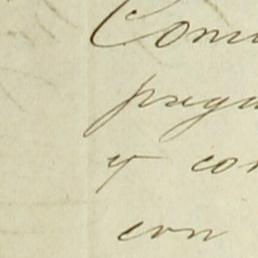 Comi
pregu
y con
con